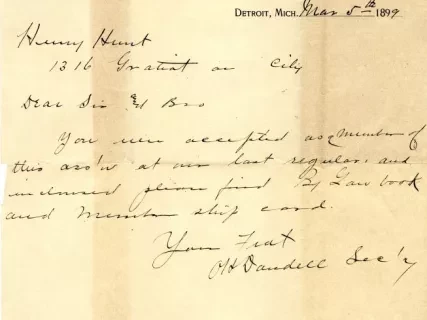 DETROIT, MICH. Mar 5th 1899
Henry Hunt
1316 Gratiot av City
Dear Sir & Bro
You were accepted as a Member of
this ass'n at our last regular, and
enclosed please find By Law book
and Member ship card.
Your Frat
Dandell Sec'y